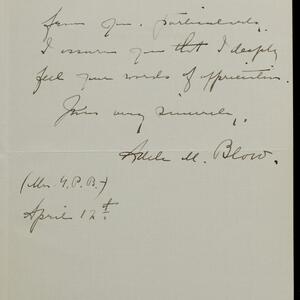 from you. Particularly,
I assure you that I deeply
feel your words of appreciation.
Yours very sincerely,
Adele M. Blow.
(Mrs G. P. B.)
April 12th.